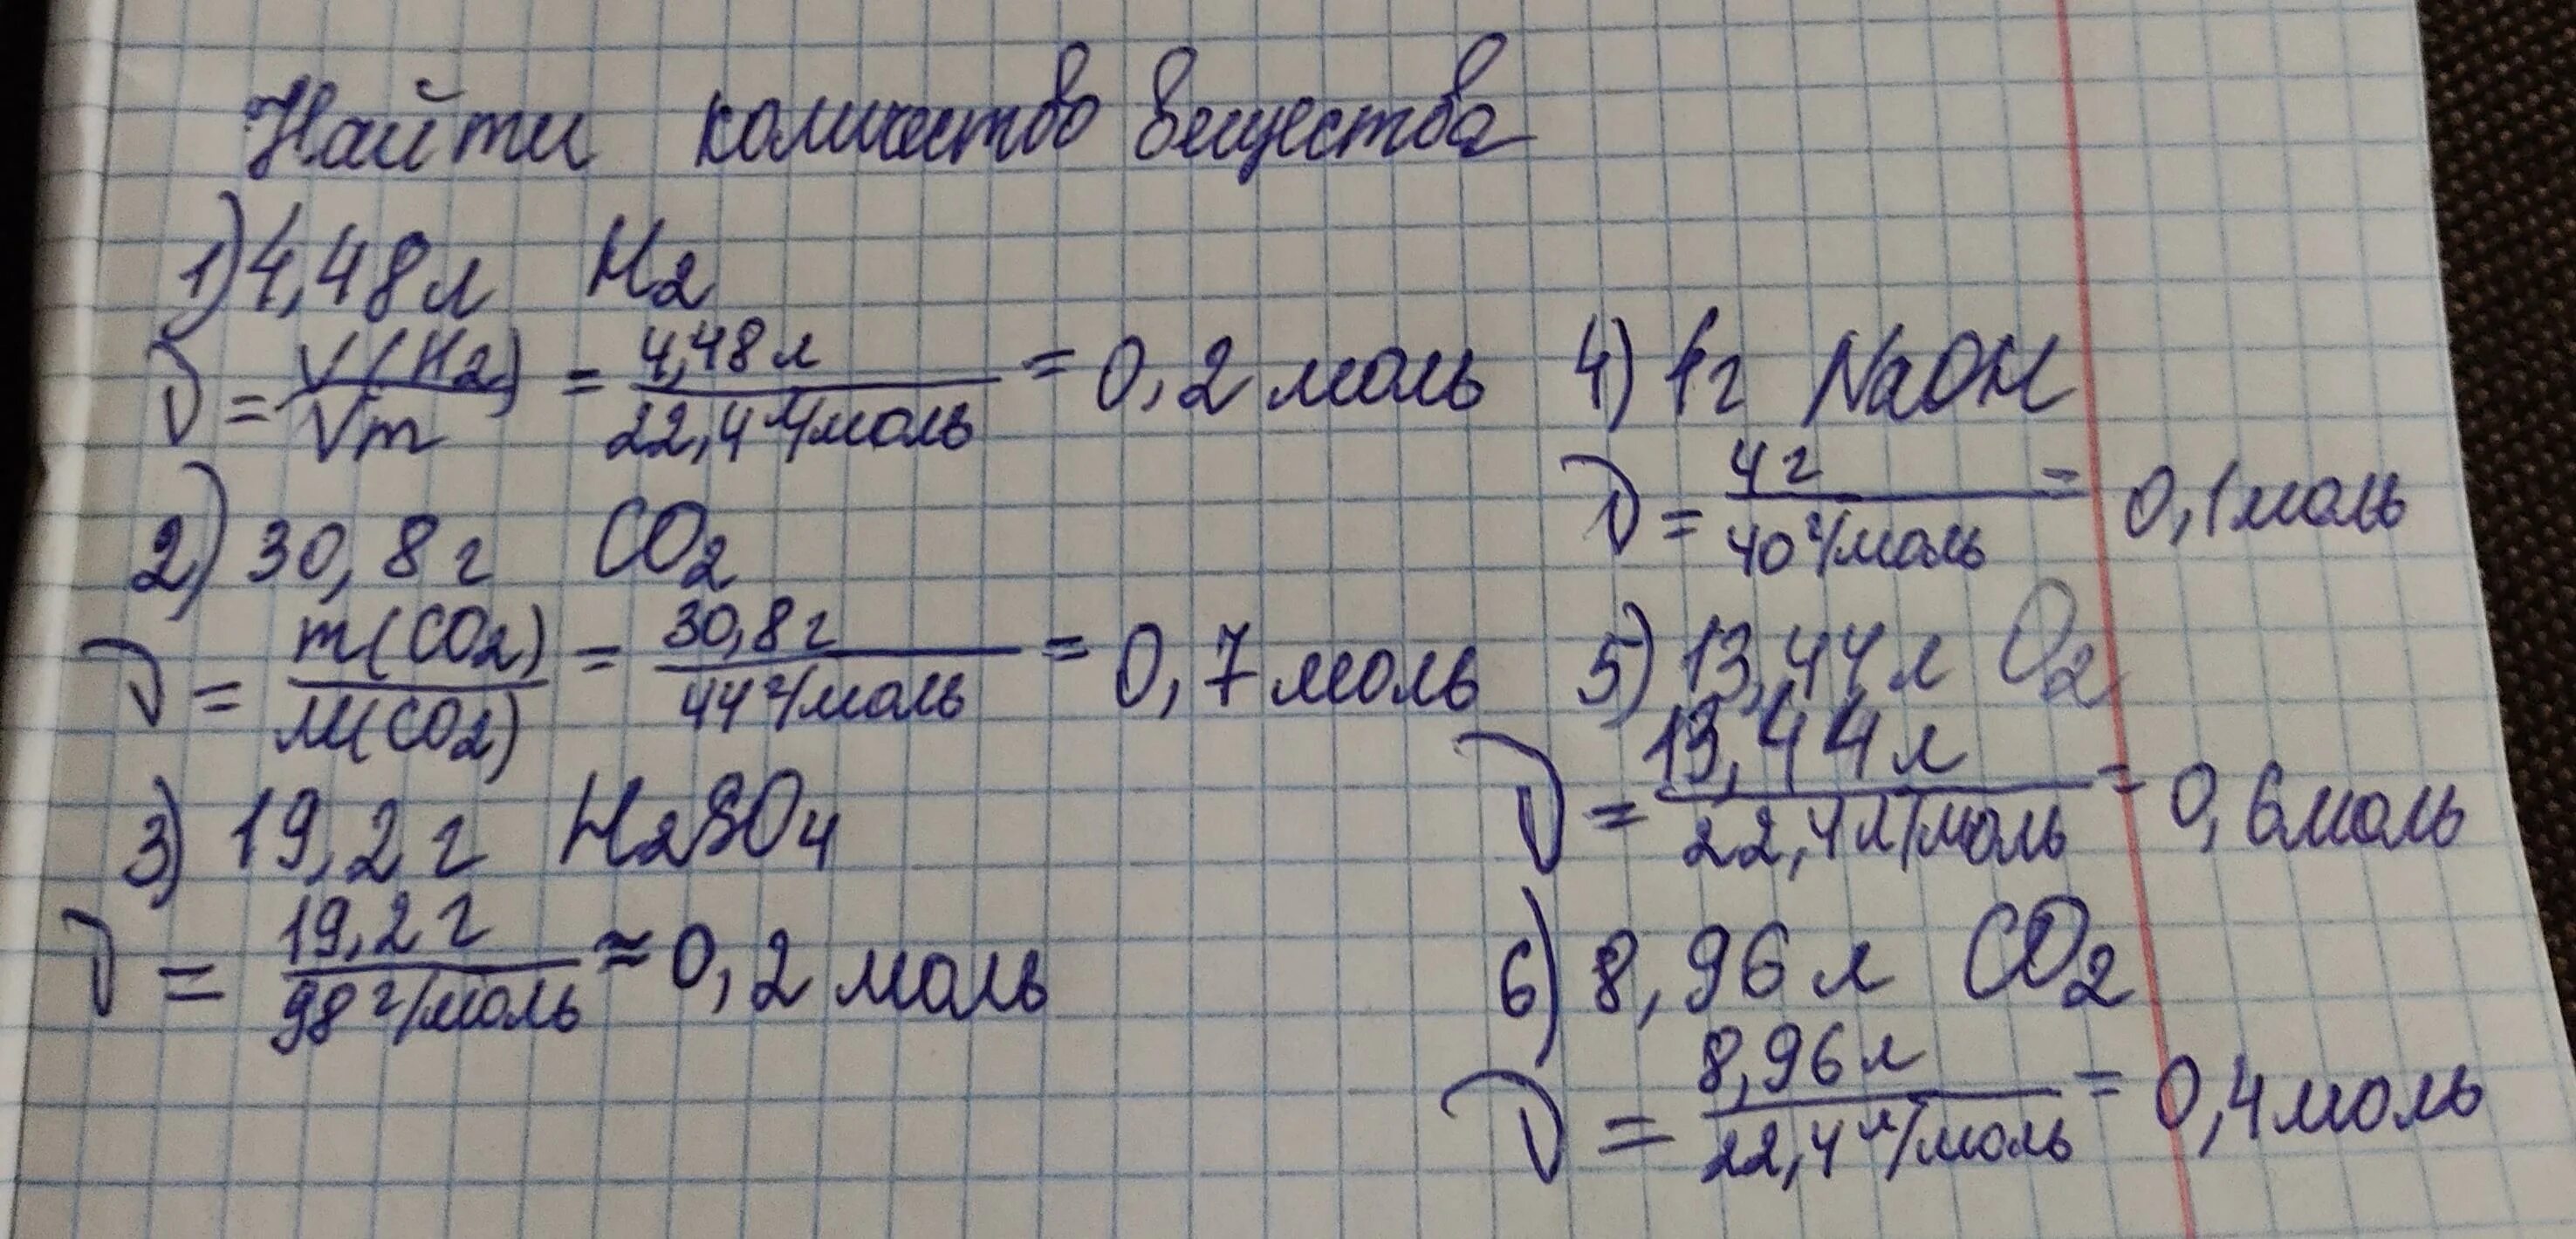 Найти количество вещества
1) 4,48 л H2
ν = V(H2)/Vm = 4,48 л/22,4 л/моль = 0,2 моль
2) 30,8 г CO2
ν = m(CO2)/M(CO2) = 30,8 г/44 г/моль = 0,7 моль
3) 19,2 г H2SO4
ν = 19,2 г/98 г/моль ≈ 0,2 моль
4) 4 г NaOH
ν = 4 г/40 г/моль = 0,1 моль
5) 13,44 л O2
ν = 13,44 л/22,4 л/моль = 0,6 моль
6) 8,96 л CO2
ν = 8,96 л/22,4 л/моль = 0,4 моль